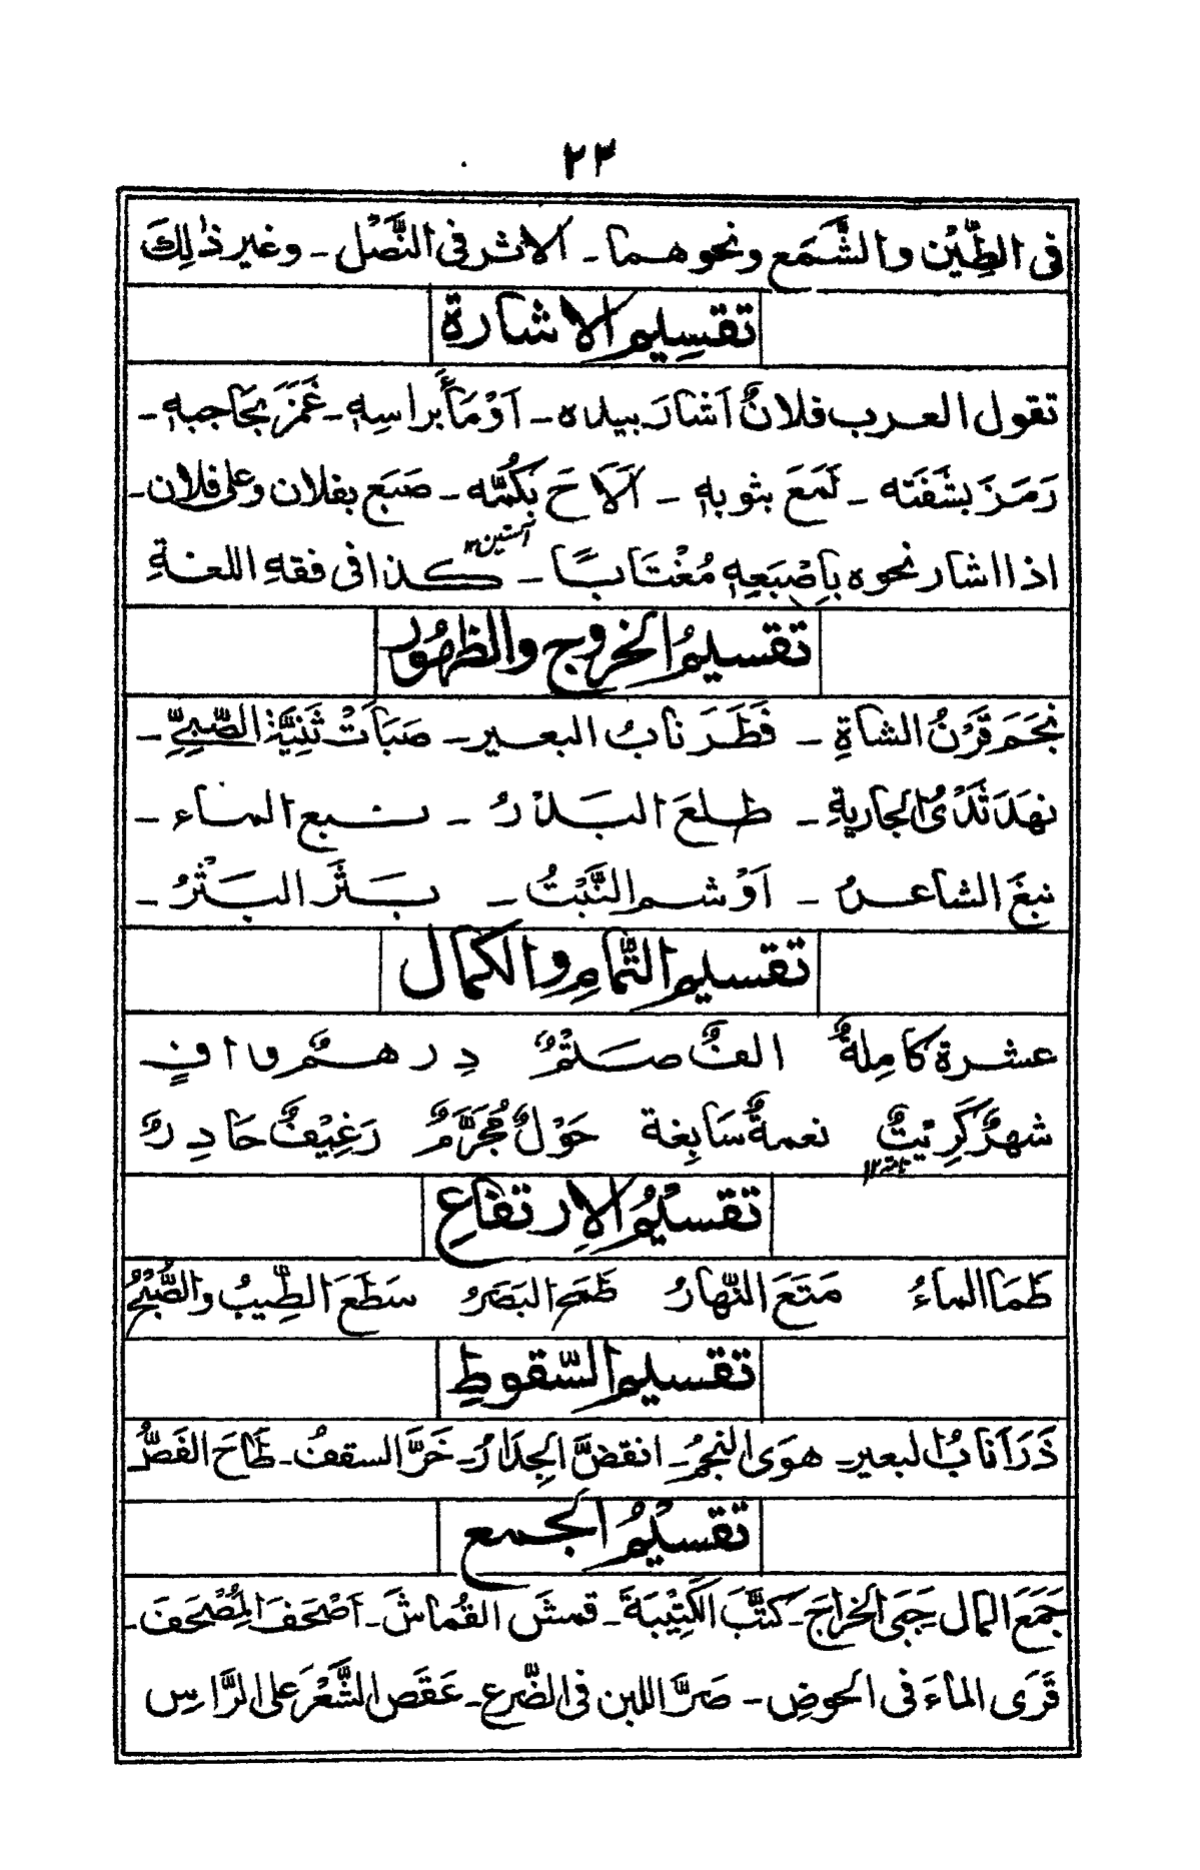 ٢٣
فی الطِّیْن والشَّمَع ونحوهما ـ الاثر فی النَّصْل ـ وغیر ذٰلِكَ
تقسِیم الاشارة
تقول العرب فلانٌ اَشارَ بیده ـ اَوْمَأَ براسِهٖ ـ غَمَزَ بحَاجبهٖ ـ
رَمَزَ بشَفَتَه ـ لَمَعَ بثوبهٖ ـ اَلَاحَ بَكُمِّه ـ صَبَع بفلان وعلی فلان ـ
آستین ١٢
اذا اشار نحوه بِاِصْبَعِهٖ مُغْتَابًا ـ كذا فی فقهِ اللغةِ
تقسیمُ الخروج والظهُور
نجَمَ قَرْنُ الشاةِ ـ فَطَرَ نابُ البعیر ـ صَبَأتْ ثَنِیَّةُ الصَّبِیِّ ـ
نهَدَ ثَدْیُ الجاریةِ ـ طلعَ البَدْرُ ـ نبع الماء ـ
نبغَ الشاعرُ ـ اَوْشم النَّبْتُ ـ بَثَرَ البَثْرُ ـ
تقسیم التَّمامِ والكمال
عشرة كامِلةٌ الفٌ صَتْمٌ دِرهمٌ وافٍ
شهرٌ كَرِیْتٌ نعمةٌ سَابِغة حَوْلٌ مُجَرَّمٌ رَغِیْفٌ حَادِرٌ
تامّہ ١٢
تقسیْمُ الاِرتفَاعِ
طَمَا الماءُ مَتَعَ النّهارُ طَمَح البَصَرُ سَطَعَ الطِّیبُ والصُّبْحُ
تقسیم السّقوطِ
ذَرَأ نابُ البعیر ـ هوَی النجمُ ـ انقضَّ الجِدَارُ ـ خَرَّ السقفُ ـ طَاحَ الفَصُّ
تقسیْمُ الجمع
جَمَعَ المال ـ جَبَی الخراجَ ـ كتَّبَ الكَتِیْبَةَ ـ قمشَ القُماشَ ـ اَصْحَفَ المُصْحَفَ ـ
قَرَی الماءَ فی الحوضِ ـ صَرَّ اللبن فی الضَّرعِ ـ عَقَص الشَّعْرَ علی الرَّاسِ